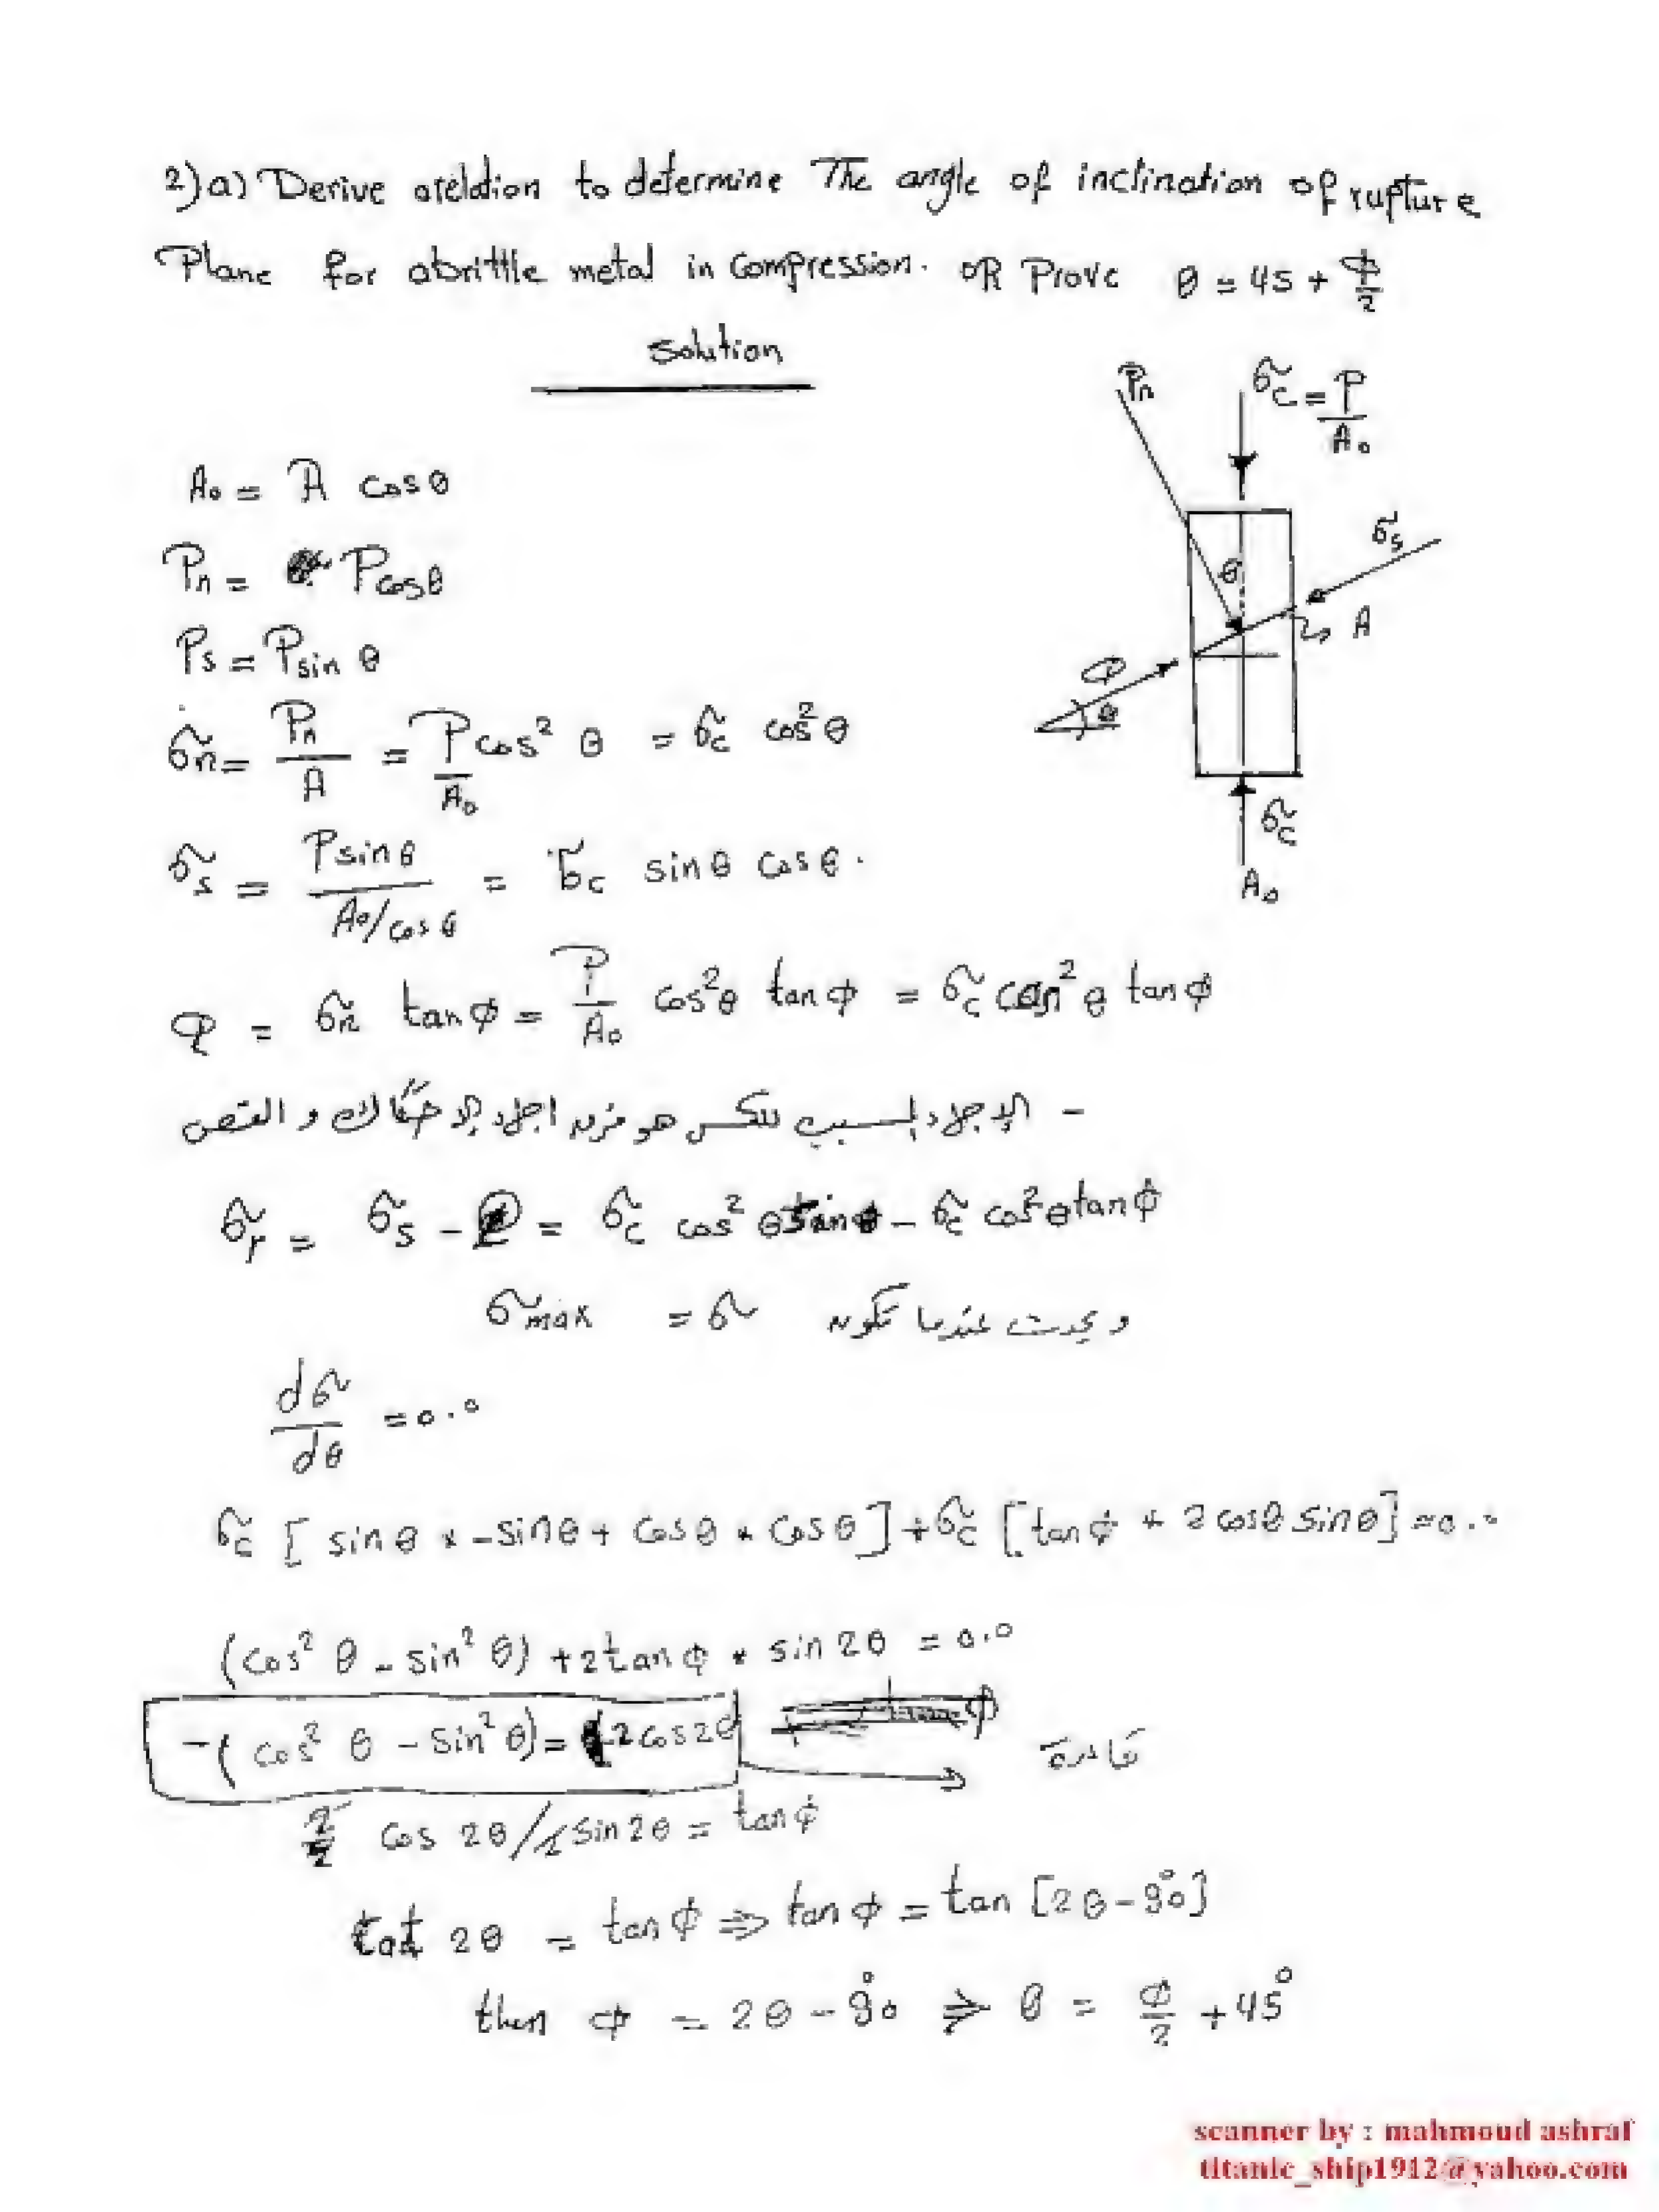 2) a) Derive a relation to determine The angle of inclination of rupture
Plane for a brittle metal in compression. OR Prove θ = 45 + φ/2
Solution
A₀ = A cos θ
Pn = P cos θ
Ps = P sin θ
σn = Pn/A = P/A₀ cos² θ = σc cos² θ
σs = P sin θ / (A₀/cos θ) = σc sin θ cos θ.
φ = σn tan φ = P/A₀ cos² θ tan φ = σc cos² θ tan φ
- الإجهاد المسبب للكسر هو فرق اجهاد الاحتكاك والقص
σr = σs - φ = σc cos² θ sin θ - σc cos² θ tan φ
ويحدث عندما تكون σ = σmax
dσ/dθ = 0.0
σc [ sin θ * -sin θ + cos θ * cos θ ] + σc [ tan φ * 2 cos θ sin θ ] = 0.0
(cos² θ - sin² θ) + 2 tan φ * sin 2θ = 0.0
-( cos² θ - sin² θ) = 2 cos 2θ → قاعدة
2/2 cos 2θ / 2 sin 2θ = tan φ
cot 2θ = tan φ ⇒ tan φ = tan [2θ - 90°]
then φ = 2θ - 90° ⇒ θ = φ/2 + 45°
Pn
σc = P/A₀
θ
σs
A
φ
θ
σc
A₀
scanner by : mahmoud ashraf
titanic_ship1912@yahoo.com